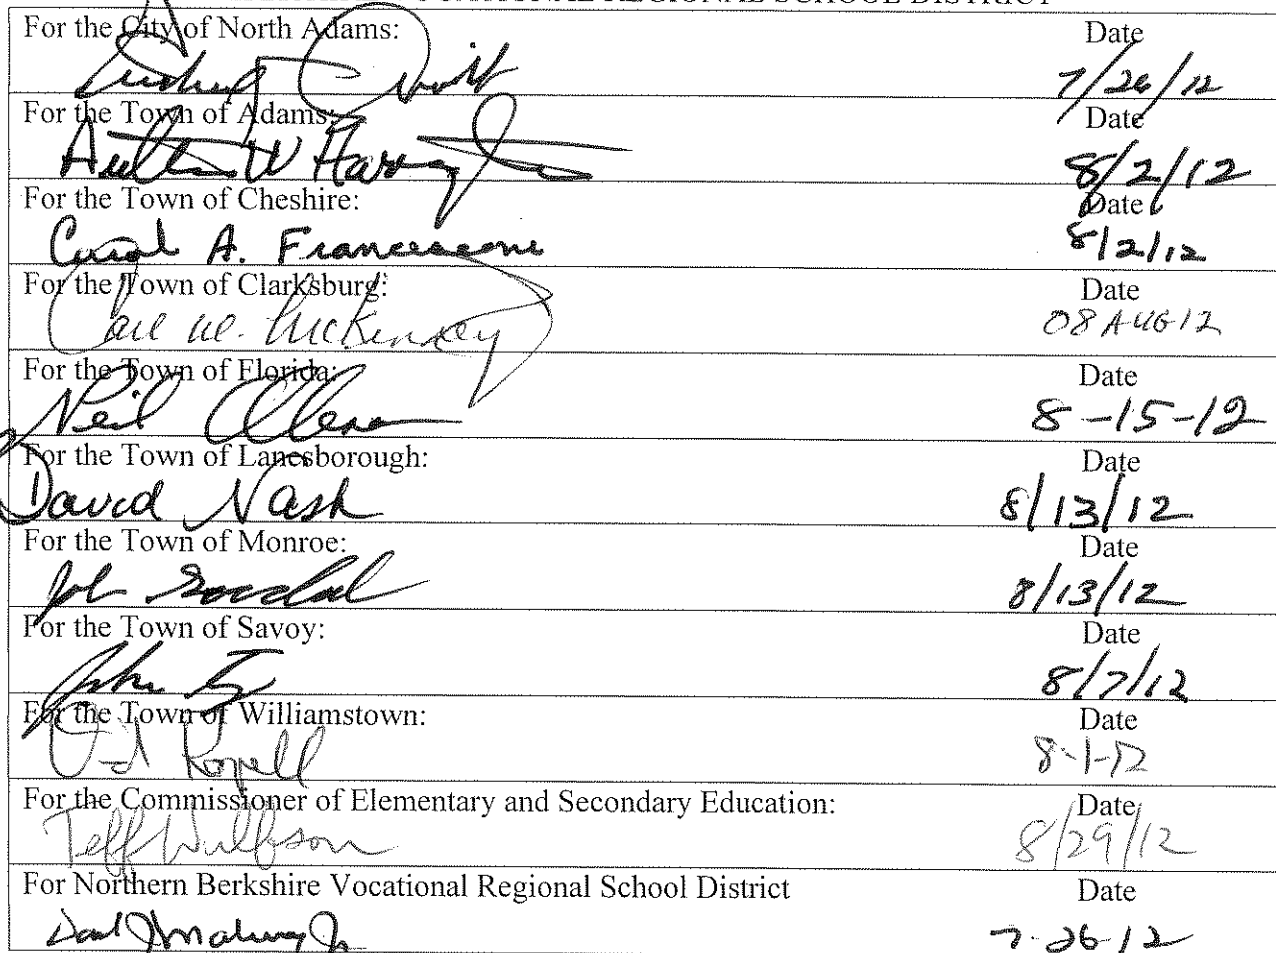 REGIONAL SCHOOL DISTRICT
For the City of North Adams: Date
7/26/12
For the Town of Adams: Date
Arthur W Harrington 8/2/12
For the Town of Cheshire: Date
Carol A. Francesconi 8/2/12
For the Town of Clarksburg: Date
Carl W. McKinney 08 AUG 12
For the Town of Florida: Date
Neil Oleson 8-15-12
For the Town of Lanesborough: Date
David Nash 8/13/12
For the Town of Monroe: Date
8/13/12
For the Town of Savoy: Date
John 8/7/12
For the Town of Williamstown: Date
8-1-12
For the Commissioner of Elementary and Secondary Education: Date
Jeff Wulfson 8/29/12
For Northern Berkshire Vocational Regional School District Date
7-26-12